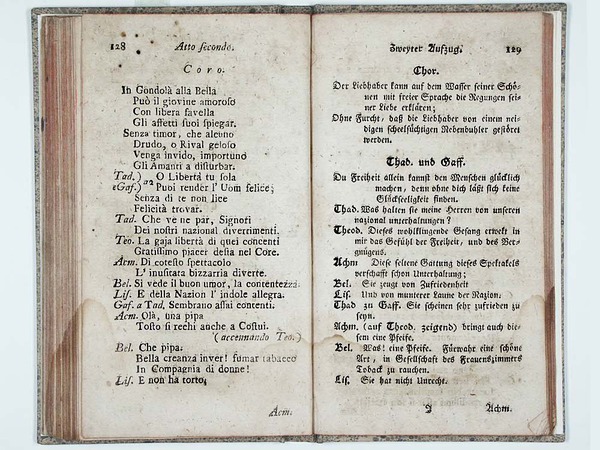 128 Atto secondo.
Coro.
In Gondolà alla Bella
Può il giovine amoroso
Con libera favella
Gli affetti suoi spiegar.
Senza timor, che alcuno
Drudo, o Rival geloso
Venga invido, importuno
Gli Amanti a disturbar.
Tad.) O Libertà tu sola
Gaf.) a2 Puoi render l' Uom felice;
Senza di te non lice
Felicità trovar.
Tad. Che ve ne par, Signori
Dei nostri nazional divertimenti.
Teo. La gaja libertà di quei concenti
Gratissimo piacer desta nel Core.
Acm. Di cotesto spettacolo
L' inusitata bizzarria diverte.
Bel. Si vede il buon umor, la contentezza
Lis. E della Nazion l' indole allegra.
Gaf. a Tad. Sembrano assai contenti.
Acm. Olà, una pipa
Tosto si rechi anche a Costui.
(accennando Teo.)
Bel. Che pipa:
Bella creanza inver! fumar tabacco
In Compagnia di donne!
Lis. E non ha torto;
Acm.
Zweyter Aufzug. 129
Chor.
Der Liebhaber kann auf dem Wasser seiner Schö-
nen mit freier Sprache die Regungen sei-
ner Liebe erklären;
Ohne Furcht, daß die Liebhaber von einem nei-
digen scheelsüchtigen Nebenbuhler gestöret
werden.
Thad. und Gaff.
Du Freiheit allein kannst den Menschen glücklich
machen, denn ohne dich läßt sich keine
Glückseeligkeit finden.
Thad. Was halten sie meine Herren von unseren
nazional unterhaltungen?
Theod. Dieses wohlklingende Gesang erweckt in
mir das Gefühl der Freiheit, und des Ver-
gnügens.
Achm Diese seltene Gattung dieses Spektakels
verschafft schon Unterhaltung;
Bel. Sie zeugt von Zufriedenheit
Lis. Und von munterer Laune der Nazion.
Thad zu Gaff. Sie scheinen sehr zufrieden zu
seyn.
Achm. (auf Theod. zeigend) bringt auch die-
sem eine Pfeife.
Bel. Was! eine Pfeife. Fürwahr eine schöne
Art, in Gesellschaft des Frauenszimmers
Toback zu rauchen.
Lis. Sie hat nicht Unrecht.
J Achm.